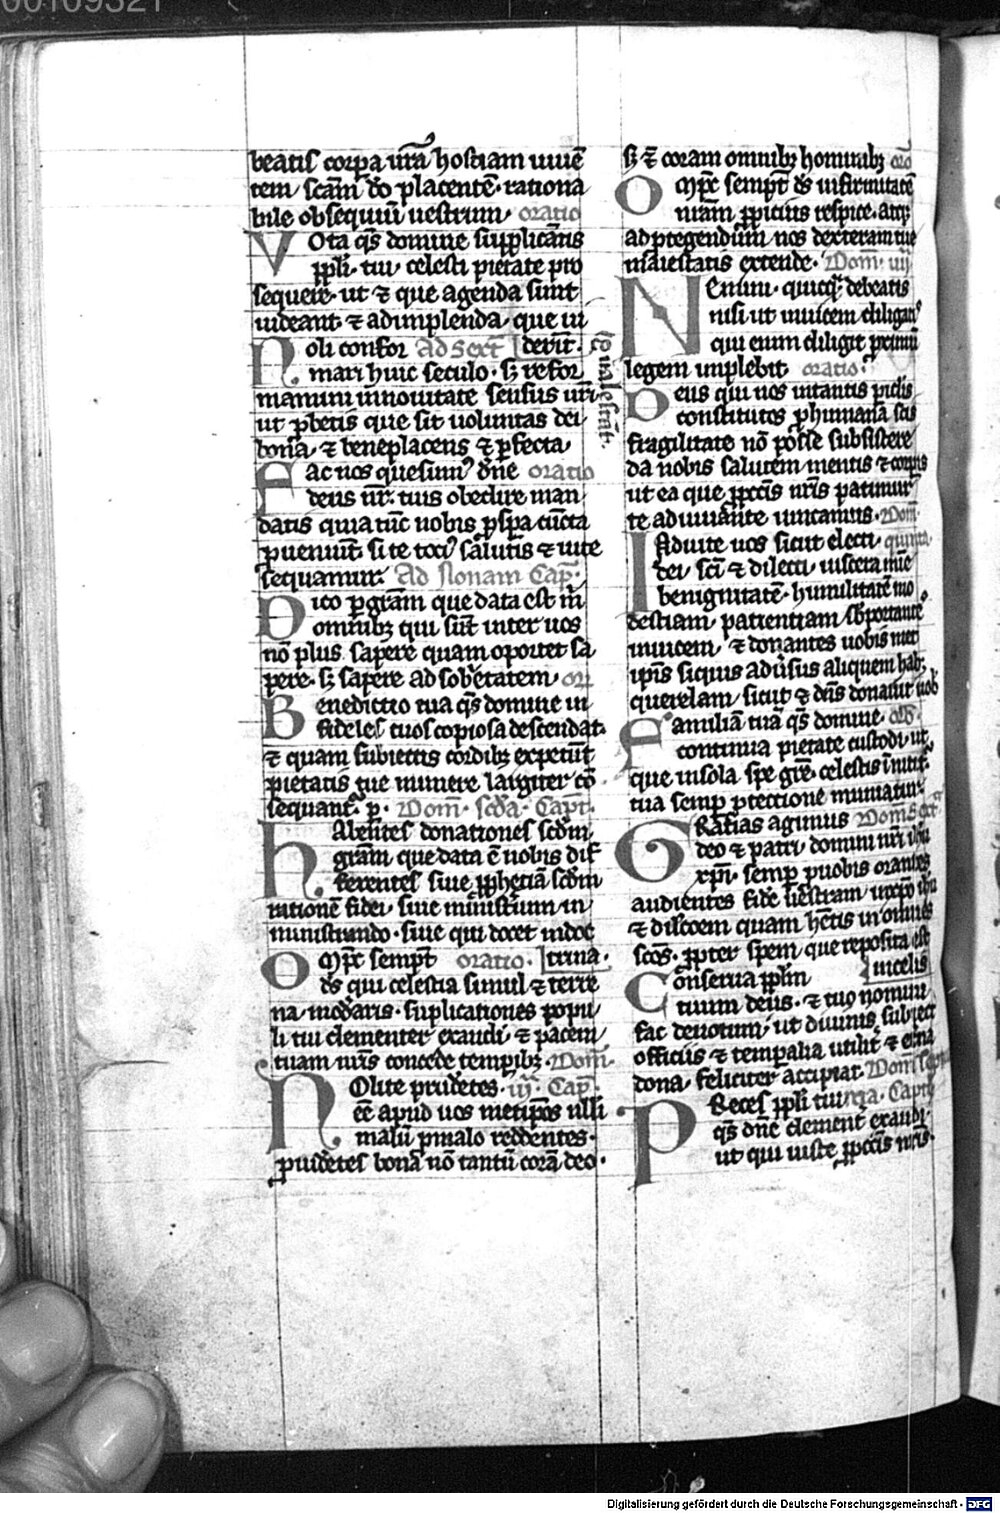 beatis corpa ur̄a hostiam uiuē
tem scām dō placentē rationa
bile obsequiū uestrum oratio
Vota qs̄ domine supplicātis
ppli tui celesti pietate pro
sequere ut ⁊ que agenda sunt
uideant ⁊ adimplenda que ui
derīt
Noli confor Ad Sext̄
mari huic seculo sꝫ refor
mamini innouitate sensus ur̄i
ut ꝓbetis que sit uoluntas dei
bona ⁊ beneplacens ⁊ ꝑfecta
ualescāt
Fac nos quesumꝰ dn̄e oratio
deus nr̄ tuis obedire man
datis quia tūc nobis ꝓspa cūcta
ꝓueniūt si te tociꝰ salutis ⁊ uite
sequamur Ad Nonam Cap̄
Dico ꝑ grām que data est m̄
omnibꝫ qui sūt inter uos
nō plus sapere quam oportet sa
pere sꝫ sapere ad sob'etatem or̄
Benedictio tua qs̄ domine in
fideles tuos copiosa descendat
⁊ quam subiectis cordibꝫ expetūt
pietatis tue munere largiter cō
sequant p Dom̄ scd̄a Capt̄
Habentes donationes scd̄m
grām que data ē uobis dif
ferentes siue ꝓphetiā scd̄m
rationē fidei siue ministrium in
ministrando siue qui docet indoc
trina
Omp̄c sempt̄ oratio
ds̄ qui celestia simul ⁊ terre
na mod'aris suplicationes popu
li tui clementer exaudi ⁊ pacem
tuam nr̄is concede tempibꝫ Dom̄
Nolite prudētes iij Cap̄
eē apud uos metip̄os ulli
malū ꝓ malo reddentes
ꝓuidētes bona nō tantū corā deo
sꝫ ⁊ coram omnibꝫ hominibꝫ oro
Omp̄c sempt̄ ds̄ infirmitatē
nr̄am ꝓpicius respice atqꝫ
ad ꝓtegendum nos dexteram tue
maiestatis extende Dom̄ iiij
Nemini quicqꝫ debeatis
nisi ut inuicem diligatꝰ
qui enim diligit ꝓximū
legem impleuit oratio
Deus qui nos intantis piclis
constitutos ꝓ humana scis
fragilitate nō posse subsistere
da nobis salutem mentis ⁊ corpis
ut ea que ꝓ pccīs nr̄is patimur
te adiuuante uincamus Dom̄
quinta
Induite uos sicut electi
dei sc̄i ⁊ dilecti uiscera mīe
benignitatē humilitatē mo
destiam patientiam sbportante
inuicem ⁊ donantes uobis met
ipīs siquis adu'sus aliquem hab
querelam sicut ⁊ dn̄s donauit uob
Familiā tuā qs̄ domine
continua pietate custodi ut
que insola spe grē celestis innitit
tua semp ꝓtectione muniatur
Gratias agimus Dom̄ sext
deo ⁊ patri domini nr̄i ihū
xp̄i semp ꝓ uobis orantes
audientes fidē uestram in xpo ihū
⁊ dilectōem quam hētis in omnes
scōs ꝓpter spem que reposita est
in celis
Conserua pplm̄
tuum deus ⁊ tuo nomini
fac deuotum ut diuinis subiect
officiis ⁊ tempalia utilit ⁊ etn̄a
dona feliciter accipiat Dom̄ sept
Preces ppli tui Capt̄
qs̄ dn̄e clement exaudi
ut qui iuste ꝓ pccīs nr̄is
Digitalisierung gefördert durch die Deutsche Forschungsgemeinschaft - DFG